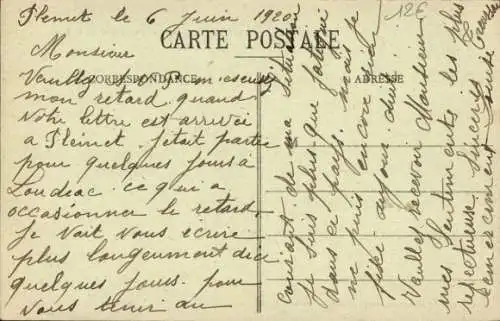 Plemet le 6 Juin 1920
12€
CARTE POSTALE
CORRESPONDANCE
ADRESSE
Monsieur
Veuillez
mon retard. quand
votre lettre est arrivée
a Plemet. j'etait partie
pour quelques jours a
Loudeac. ce qui a
occasionner le retard.
Je vait vous ecrire
plus longeument dici
quelques jours. pour
vous tenir au
courant de ma situation
Je suis plus que fatigué
dans ce pays. mais je
ne puis encore rien
fixé aujour. dui
Veuillez recevoir Monsieur
mes sentiments les plus
respectueuse sinceres
remerciment